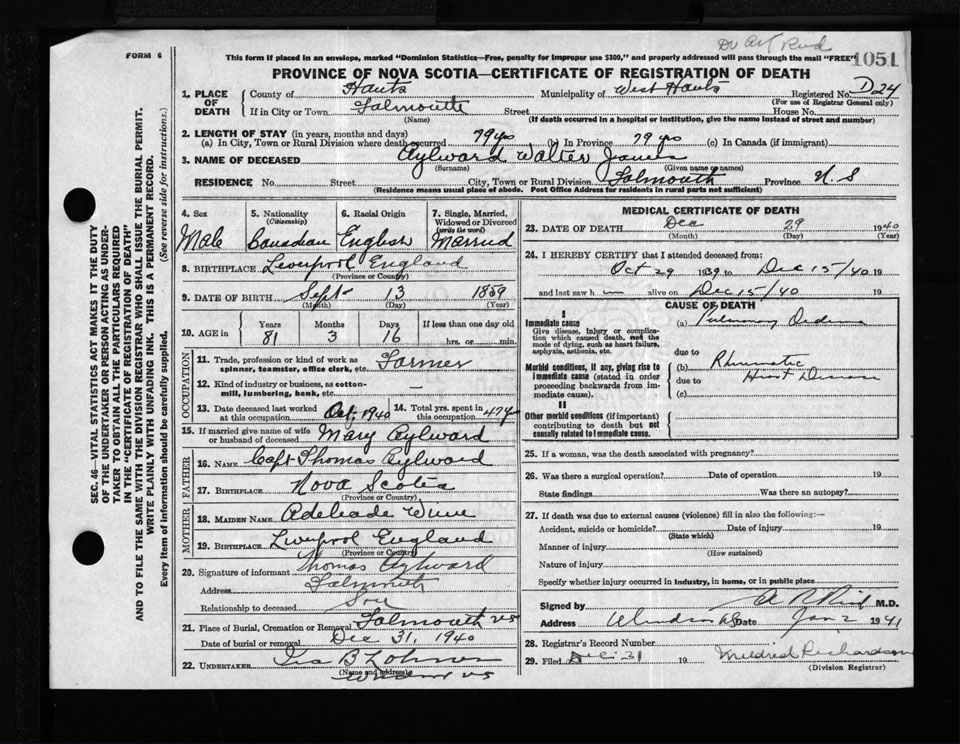 FORM 6
Dr A R Reid
This form if placed in an envelope, marked "Dominion Statistics—Free, penalty for improper use $300," and properly addressed will pass through the mail "FREE"
1051
PROVINCE OF NOVA SCOTIA—CERTIFICATE OF REGISTRATION OF DEATH
1. PLACE OF DEATH County of Hants Municipality of West Hants Registered No. D.24
(For use of Registrar General only)
If in City or Town Falmouth Street House No.
(Name) (If death occurred in a hospital or institution, give the name instead of street and number)
2. LENGTH OF STAY (in years, months and days)
(a) In City, Town or Rural Division where death occurred 79 yrs (b) In Province 79 yrs (c) In Canada (if immigrant)
3. NAME OF DECEASED Aylward Walter James
(Surname) (Given name or names)
RESIDENCE No. Street City, Town or Rural Division Falmouth Province N.S
(Residence means usual place of abode. Post Office Address for residents in rural parts not sufficient)
4. Sex Male
5. Nationality (Citizenship) Canadian
6. Racial Origin English
7. Single, Married, Widowed or Divorced (write the word) Married
8. BIRTHPLACE Liverpool England
(Province or Country)
9. DATE OF BIRTH Sept 13 1859
(Month) (Day) (Year)
10. AGE in Years 81 Months 3 Days 16 If less than one day old hrs. or min.
OCCUPATION
11. Trade, profession or kind of work as spinner, teamster, office clerk, etc. Farmer
12. Kind of industry or business, as cotton-mill, lumbering, bank, etc. —
13. Date deceased last worked at this occupation Oct, 1940
14. Total yrs. spent in this occupation 47 yr
15. If married give name of wife or husband of deceased Mary Aylward
FATHER
16. NAME Capt Thomas Aylward
17. BIRTHPLACE Nova Scotia
(Province or Country)
MOTHER
18. MAIDEN NAME Adeliade
19. BIRTHPLACE Liverpool England
(Province or Country)
20. Signature of informant Thomas Aylward
Address Falmouth
Relationship to deceased Son
21. Place of Burial, Cremation or Removal Falmouth NS
Date of burial or removal Dec 31, 1940
22. UNDERTAKER Ira B Lohnes
(Name and address) Windsor NS
MEDICAL CERTIFICATE OF DEATH
23. DATE OF DEATH Dec 29 1940
(Month) (Day) (Year)
24. I HEREBY CERTIFY that I attended deceased from:
Oct 29 1939 to Dec 15/40 19
and last saw h alive on Dec 15/40 19
CAUSE OF DEATH
I
Immediate cause (a) Pulmonary Oedema
Give disease, injury or complication which caused death, not the mode of dying, such as heart failure, asphyxia, asthenia, etc.
due to
Morbid conditions, if any, giving rise to immediate cause (stated in order proceeding backwards from immediate cause).
(b) Rheumatic
due to Heart Disease
(c)
II
Other morbid conditions (if important) contributing to death but not causally related to immediate cause.
25. If a woman, was the death associated with pregnancy?
26. Was there a surgical operation? Date of operation 19
State findings Was there an autopsy?
27. If death was due to external causes (violence) fill in also the following:—
Accident, suicide or homicide? Date of injury 19
(State which)
Manner of injury
(How sustained)
Nature of injury
Specify whether injury occurred in industry, in home, or in public place
Signed by A R Reid M.D.
Address Windsor NS Date Jan 2 1941
28. Registrar's Record Number
29. Filed Dec 31 19 Mildred Richardson
(Division Registrar)
SEC. 46—VITAL STATISTICS ACT MAKES IT THE DUTY
OF THE UNDERTAKER OR PERSON ACTING AS UNDERTAKER TO OBTAIN ALL THE PARTICULARS REQUIRED
IN THE "CERTIFICATE OF REGISTRATION OF DEATH"
AND TO FILE THE SAME WITH THE DIVISION REGISTRAR WHO SHALL ISSUE THE BURIAL PERMIT.
WRITE PLAINLY WITH UNFADING INK. THIS IS A PERMANENT RECORD.
Every item of information should be carefully supplied. (See reverse side for instructions.)